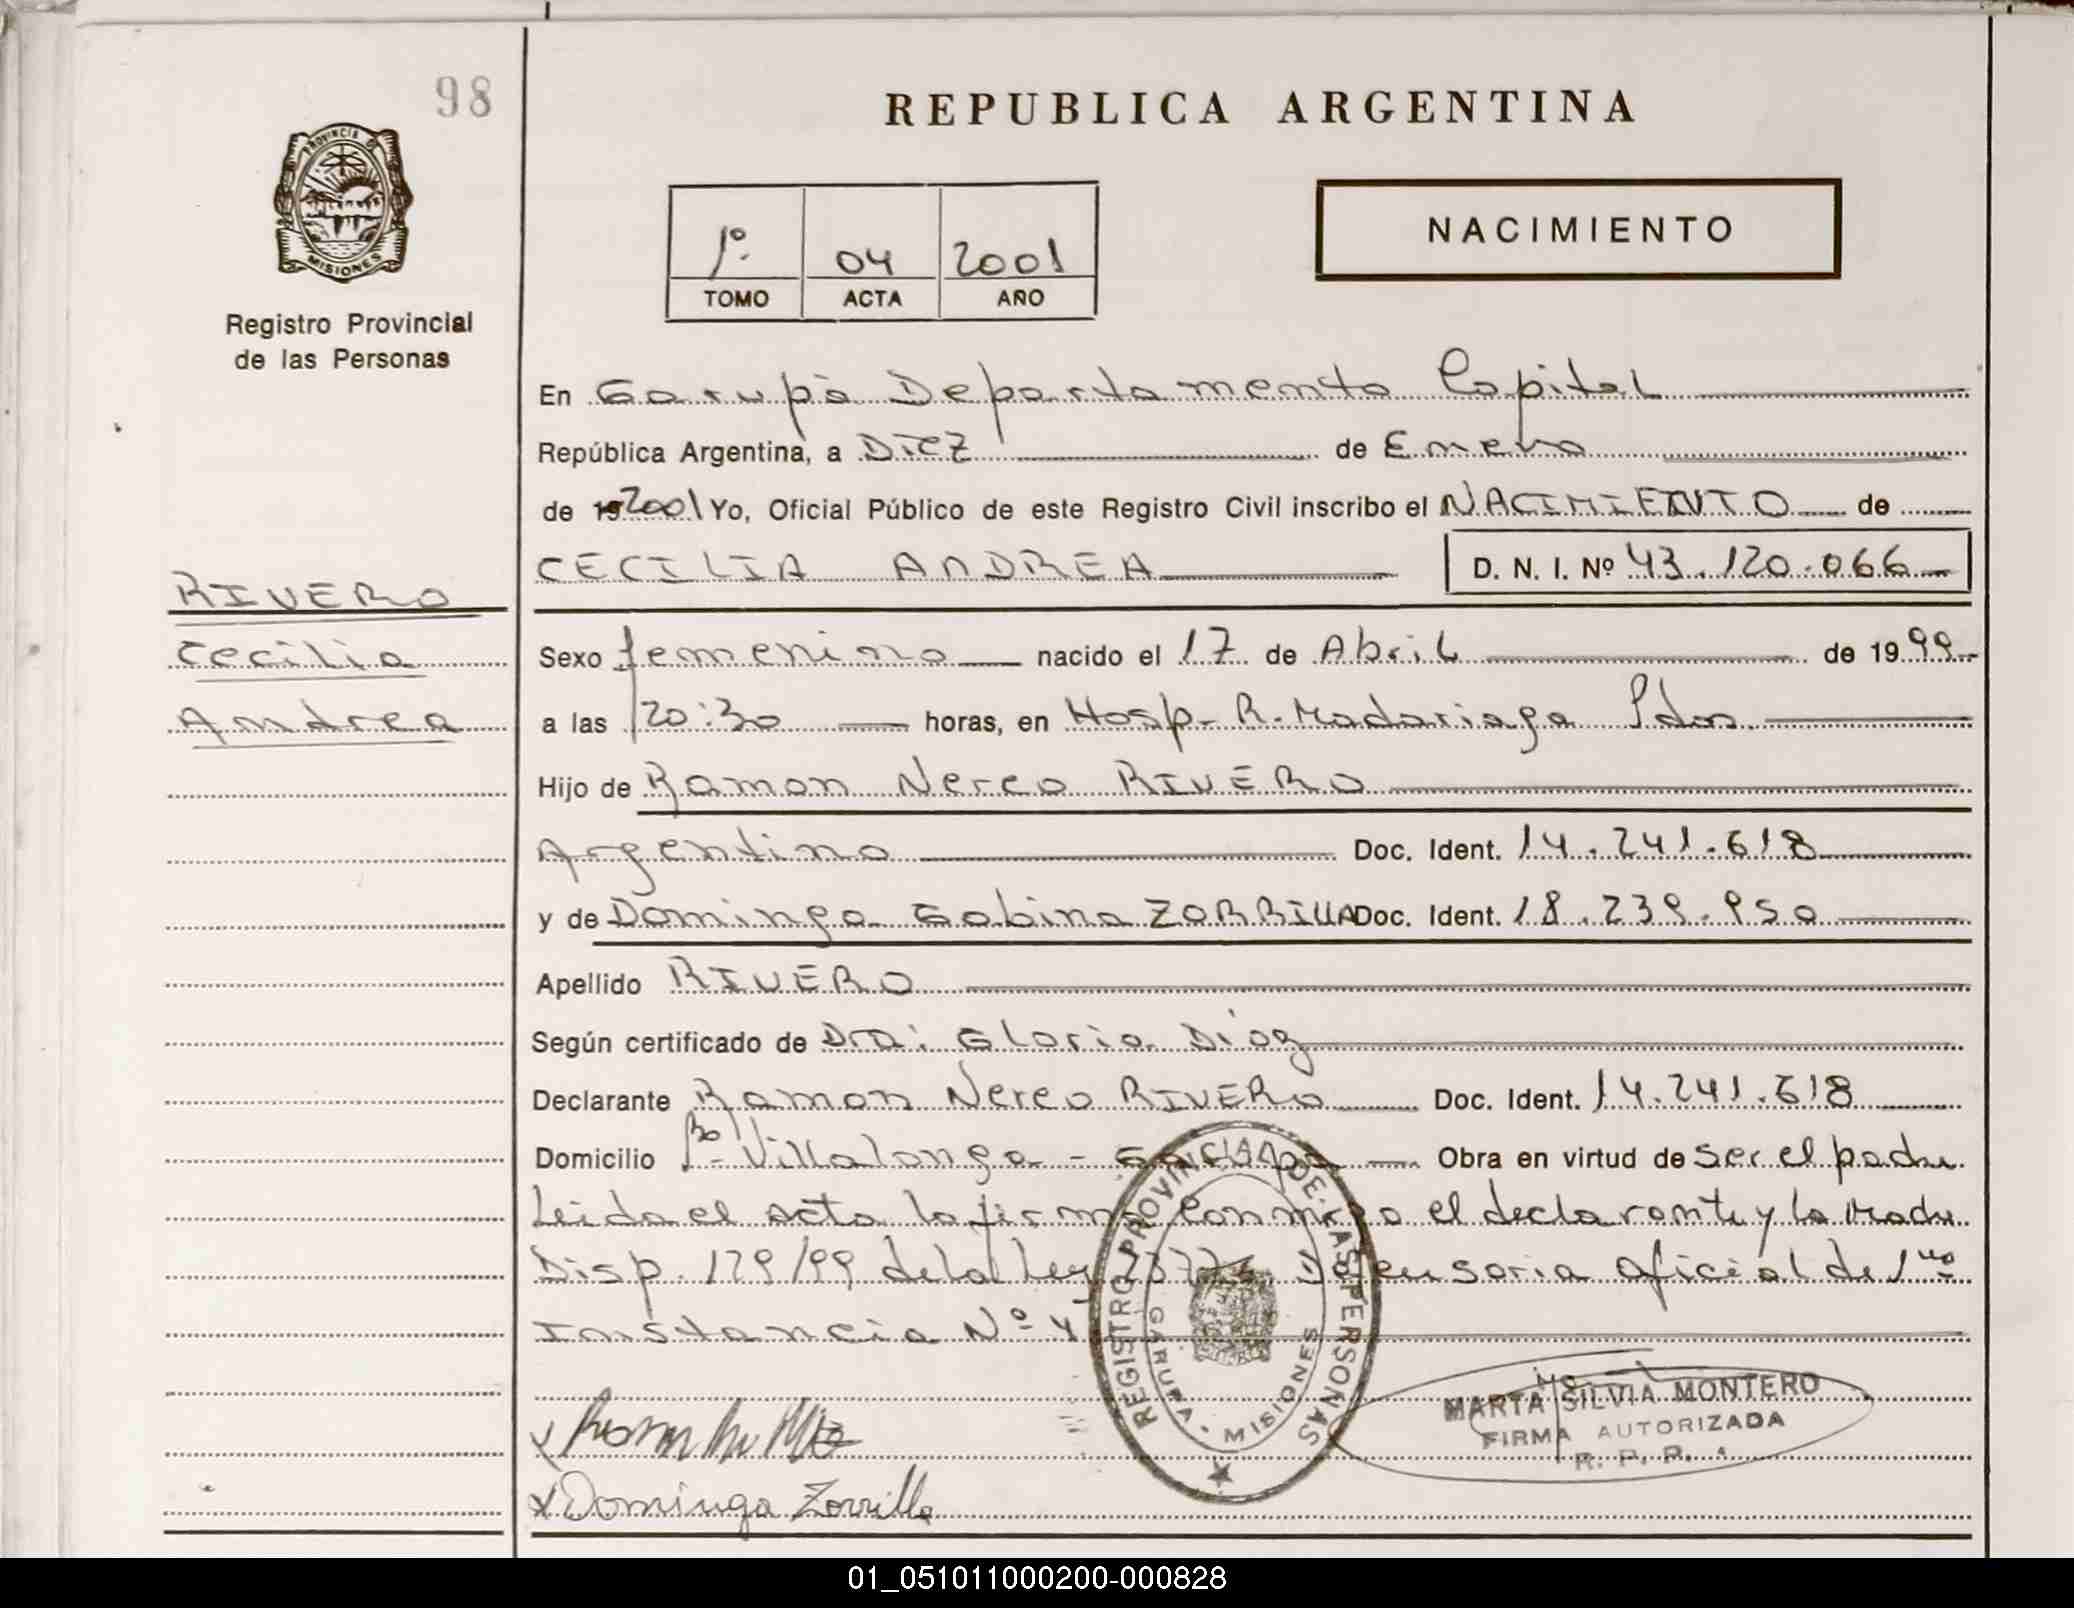 98
REPUBLICA ARGENTINA
PROVINCIA DE
MISIONES
NACIMIENTO
1º. 04 2001
TOMO ACTA AÑO
Registro Provincial
de las Personas
En Garupá Departamento Capital
República Argentina, a Diez de Enero
de 19 2001 Yo, Oficial Público de este Registro Civil inscribo el NACIMIENTO de
CECILIA ANDREA D. N. I. Nº 43.120.066
RIVERO
Cecilia
Andrea
Sexo femenino nacido el 17 de Abril de 1999
a las 20:30 horas, en Hosp. R. Madariaga Pdas.
Hijo de Ramon Nereo RIVERO
Argentino Doc. Ident. 14.241.618
y de Dominga Gabina ZORRILLA Doc. Ident. 18.239.950
Apellido RIVERO
Según certificado de Dra: Gloria Díaz
Declarante Ramon Nereo RIVERO Doc. Ident. 14.241.618
Domicilio Bº Villalonga - Garupá Obra en virtud de ser el padre
Leida el acta la firma conmigo el declarante y la Madre
Disp. 179/99 de la Ley Defensoria oficial de 1ra
Instancia Nº 4
REGISTRO PROVINCIAL DE LAS PERSONAS
GARUPA - MISIONES
MARTA SILVIA MONTERO
FIRMA AUTORIZADA
R. P. P.
x Dominga Zorrilla
01_051011000200-000828